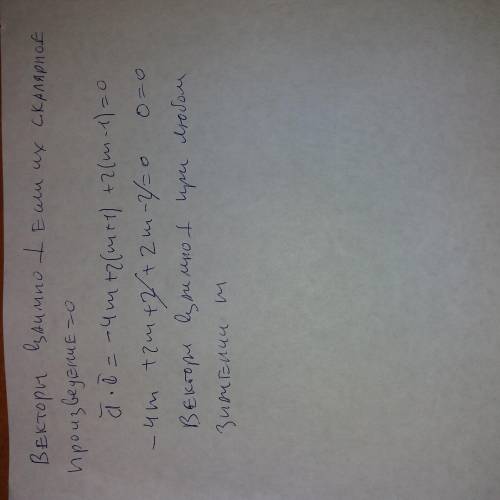 Векторы взаимно ⊥ если их скалярное
произведение=0
a̅·b̅ = -4m+2(m+1)+2(m-1)=0
-4m+2m+2+2m-2=0 0=0
Векторы взаимно ⊥ при любом
значении m